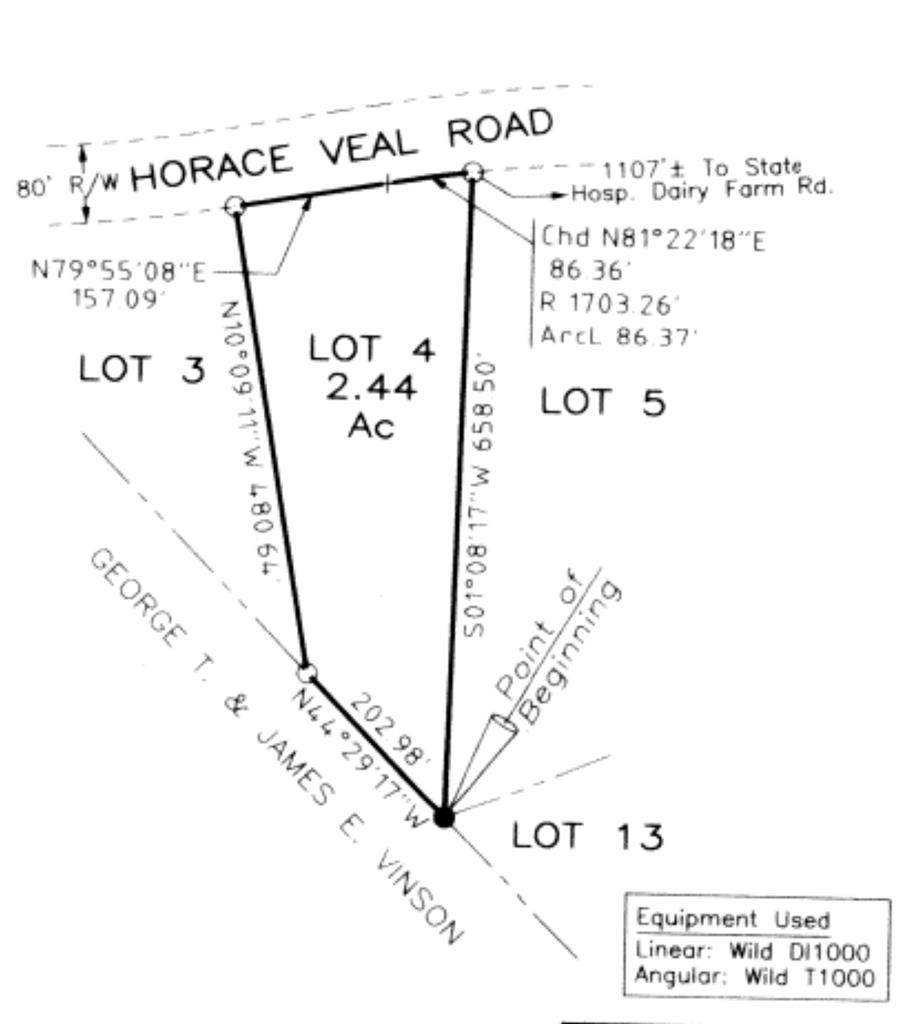 HORACE VEAL ROAD
80' R/W
1107'± To State
Hosp. Dairy Farm Rd.
Chd N81°22'18"E
86.36'
R 1703.26'
ArcL 86.37'
N79°55'08"E
157.09'
LOT 3
N10°09'11"W 480.64'
LOT 4
2.44
Ac
S01°08'17"W 658.50'
LOT 5
GEORGE T. & JAMES E. VINSON
202.98'
N44°29'17"W
Point of
Beginning
LOT 13
Equipment Used
Linear: Wild DI1000
Angular: Wild T1000